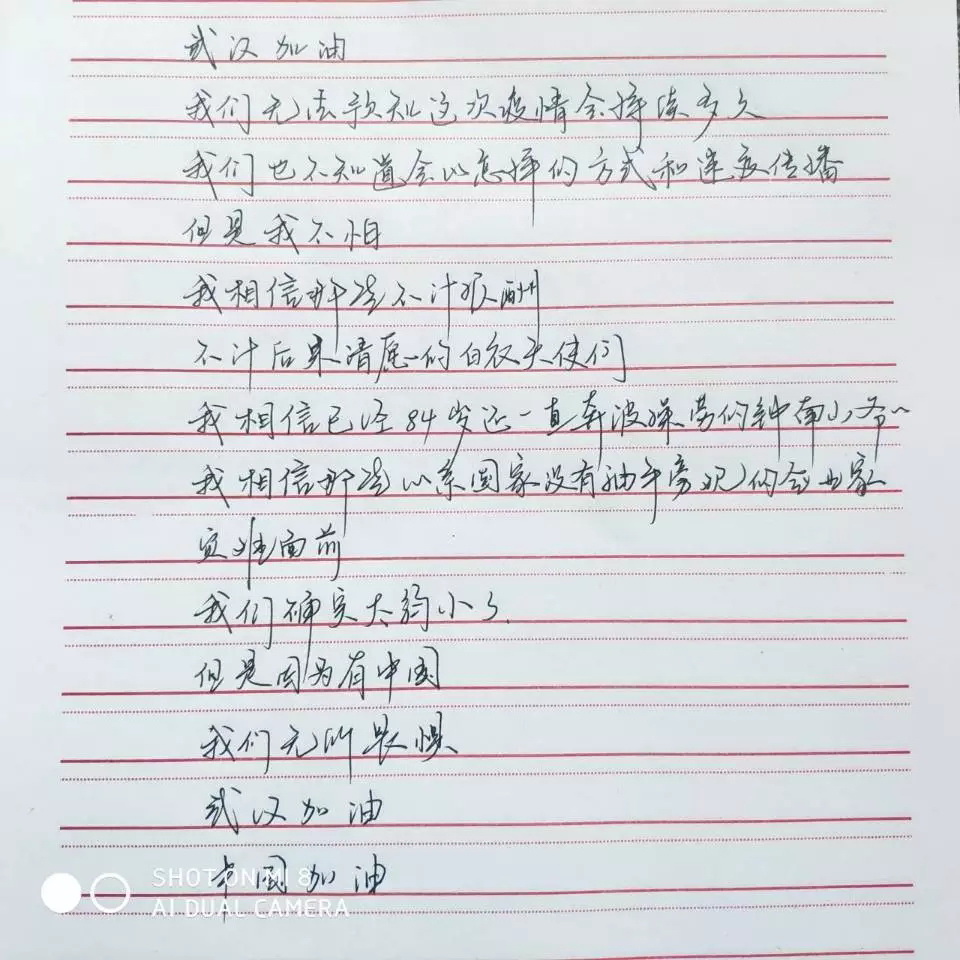 武汉加油
我们无法预知这次疫情会持续多久
我们也不知道会以怎样的方式和速度传播
但是我不怕
我相信那些不计报酬
不计后果请愿的白衣天使们
我相信已经84岁还一直奔波操劳的钟南山爷
我相信那些心系国家没有袖手旁观的企业家
灾难面前
我们确实太渺小了
但是因为有中国
我们无所畏惧
武汉加油
中国加油
SHOT ON MI 8
AI DUAL CAMERA